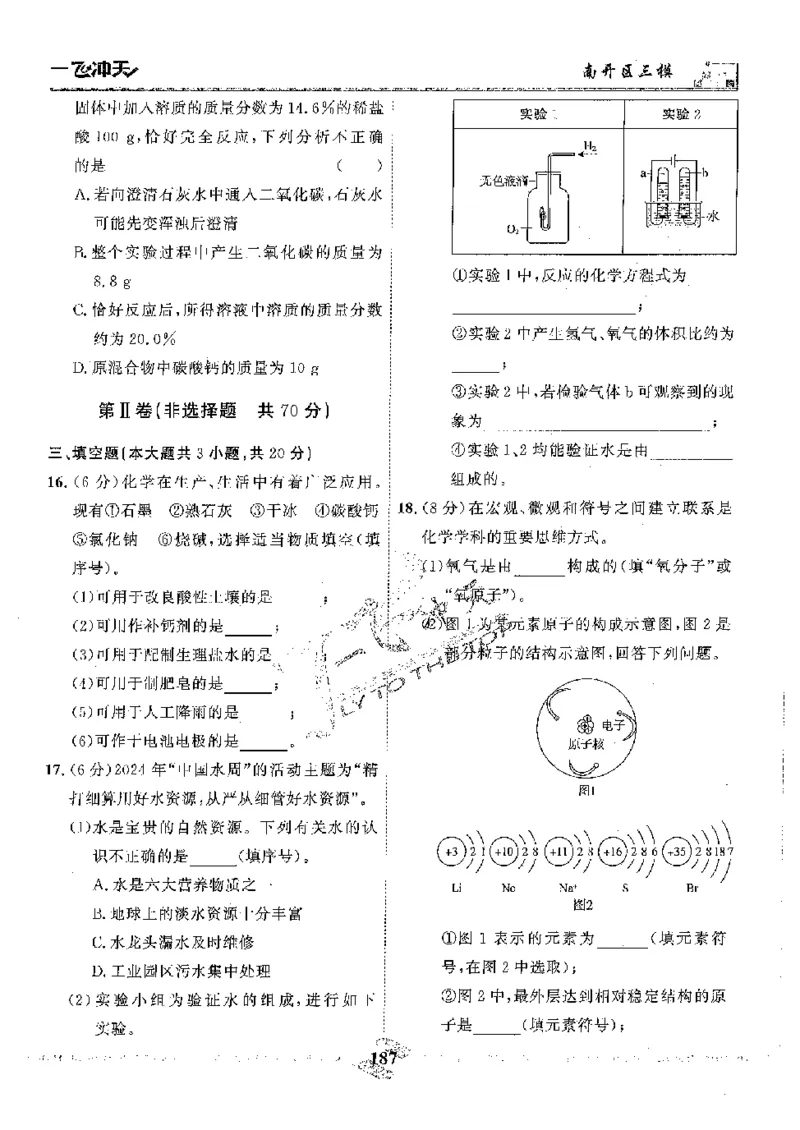 一飞冲天
南开区三模
固体中加入溶质的质量分数为14.6%的稀盐
酸100 g,恰好完全反应,下列分析不正确
的是 ( )
A.若向澄清石灰水中通入二氧化碳,石灰水
可能先变浑浊后澄清
B.整个实验过程中产生二氧化碳的质量为
8.8 g
C.恰好反应后,所得溶液中溶质的质量分数
约为20.0%
D.原混合物中碳酸钙的质量为10 g
第Ⅱ卷(非选择题 共70分)
三、填空题(本大题共3小题,共20分)
16.(6分)化学在生产、生活中有着广泛应用。
现有①石墨 ②熟石灰 ③干冰 ④碳酸钙
⑤氯化钠 ⑥烧碱,选择适当物质填空(填
序号)。
(1)可用于改良酸性土壤的是______;
(2)可用作补钙剂的是______;
(3)可用于配制生理盐水的是______;
(4)可用于制肥皂的是______;
(5)可用于人工降雨的是______;
(6)可作干电池电极的是______。
17.(6分)2024年“中国水周”的活动主题为“精
打细算用好水资源,从严从细管好水资源”。
(1)水是宝贵的自然资源。下列有关水的认
识不正确的是______(填序号)。
A.水是六大营养物质之一
B.地球上的淡水资源十分丰富
C.水龙头漏水及时维修
D.工业园区污水集中处理
(2)实验小组为验证水的组成,进行如下
实验。
实验1 实验2
H₂
无色液滴
O₂
a b
水
①实验1中,反应的化学方程式为
______;
②实验2中产生氢气、氧气的体积比约为
______;
③实验2中,若检验气体b可观察到的现
象为______;
④实验1、2均能验证水是由______
组成的。
18.(8分)在宏观、微观和符号之间建立联系是
化学学科的重要思维方式。
(1)氧气是由______构成的(填“氧分子”或
“氧原子”)。
(2)图1为某元素原子的构成示意图,图2是
部分粒子的结构示意图,回答下列问题。
电子
原子核
图1
+3 2 1 +10 2 8 +11 2 8 +16 2 8 6 +35 2 8 18 7
Li Ne Na⁺ S Br
图2
①图1表示的元素为______(填元素符
号,在图2中选取);
②图2中,最外层达到相对稳定结构的原
子是______(填元素符号);
187